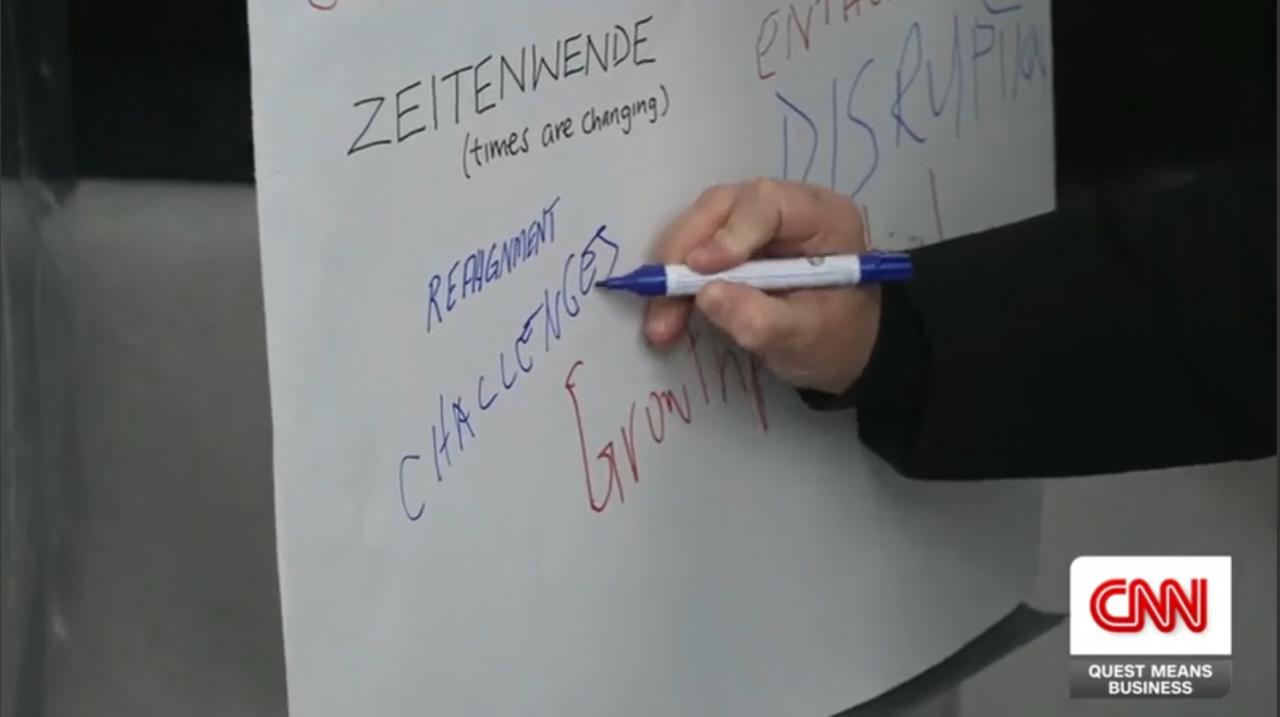 ZEITENWENDE
(times are changing)
DISRUPTION
REALIGNMENT
CHALLENGES
Growth
CNN
QUEST MEANS
BUSINESS